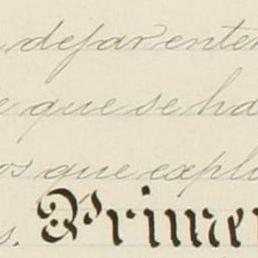 , defar enter
e que se ha
os que expli
s. Primer